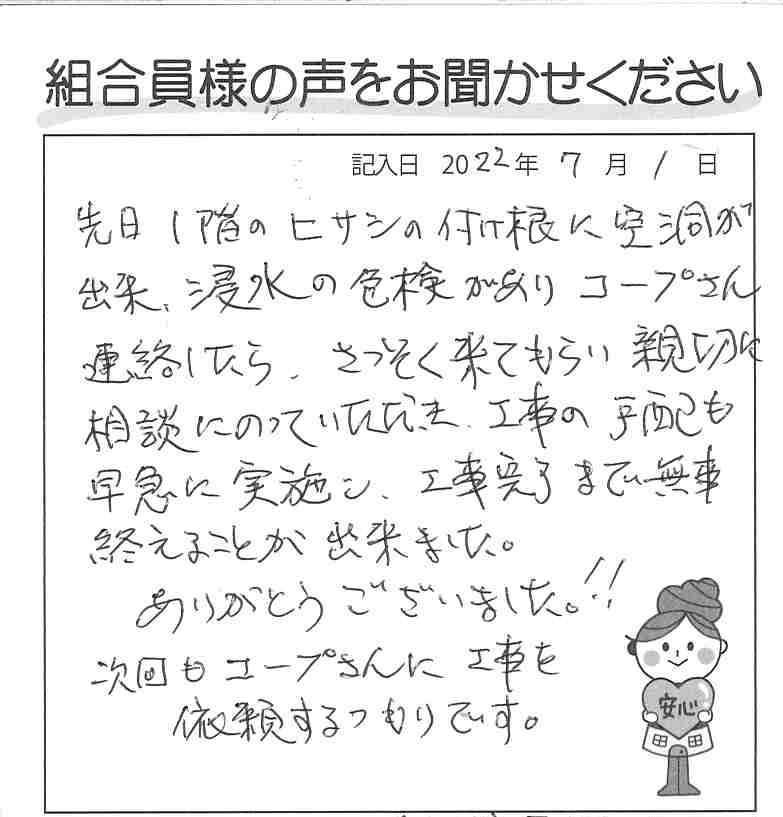 組合員様の声をお聞かせください
記入日 2022年 7月 1日
先日1階のヒサシの付け根に空洞が
出来、浸水の危検がありコープさん
連絡したら、さっそく来てもらい親切に
相談にのっていただき、工事の手配も
早急に実施し、工事完了まで無事
終えることが出来ました。
ありがとうございました。!!
次回もコープさんに工事を
依頼するつもりです。
安心